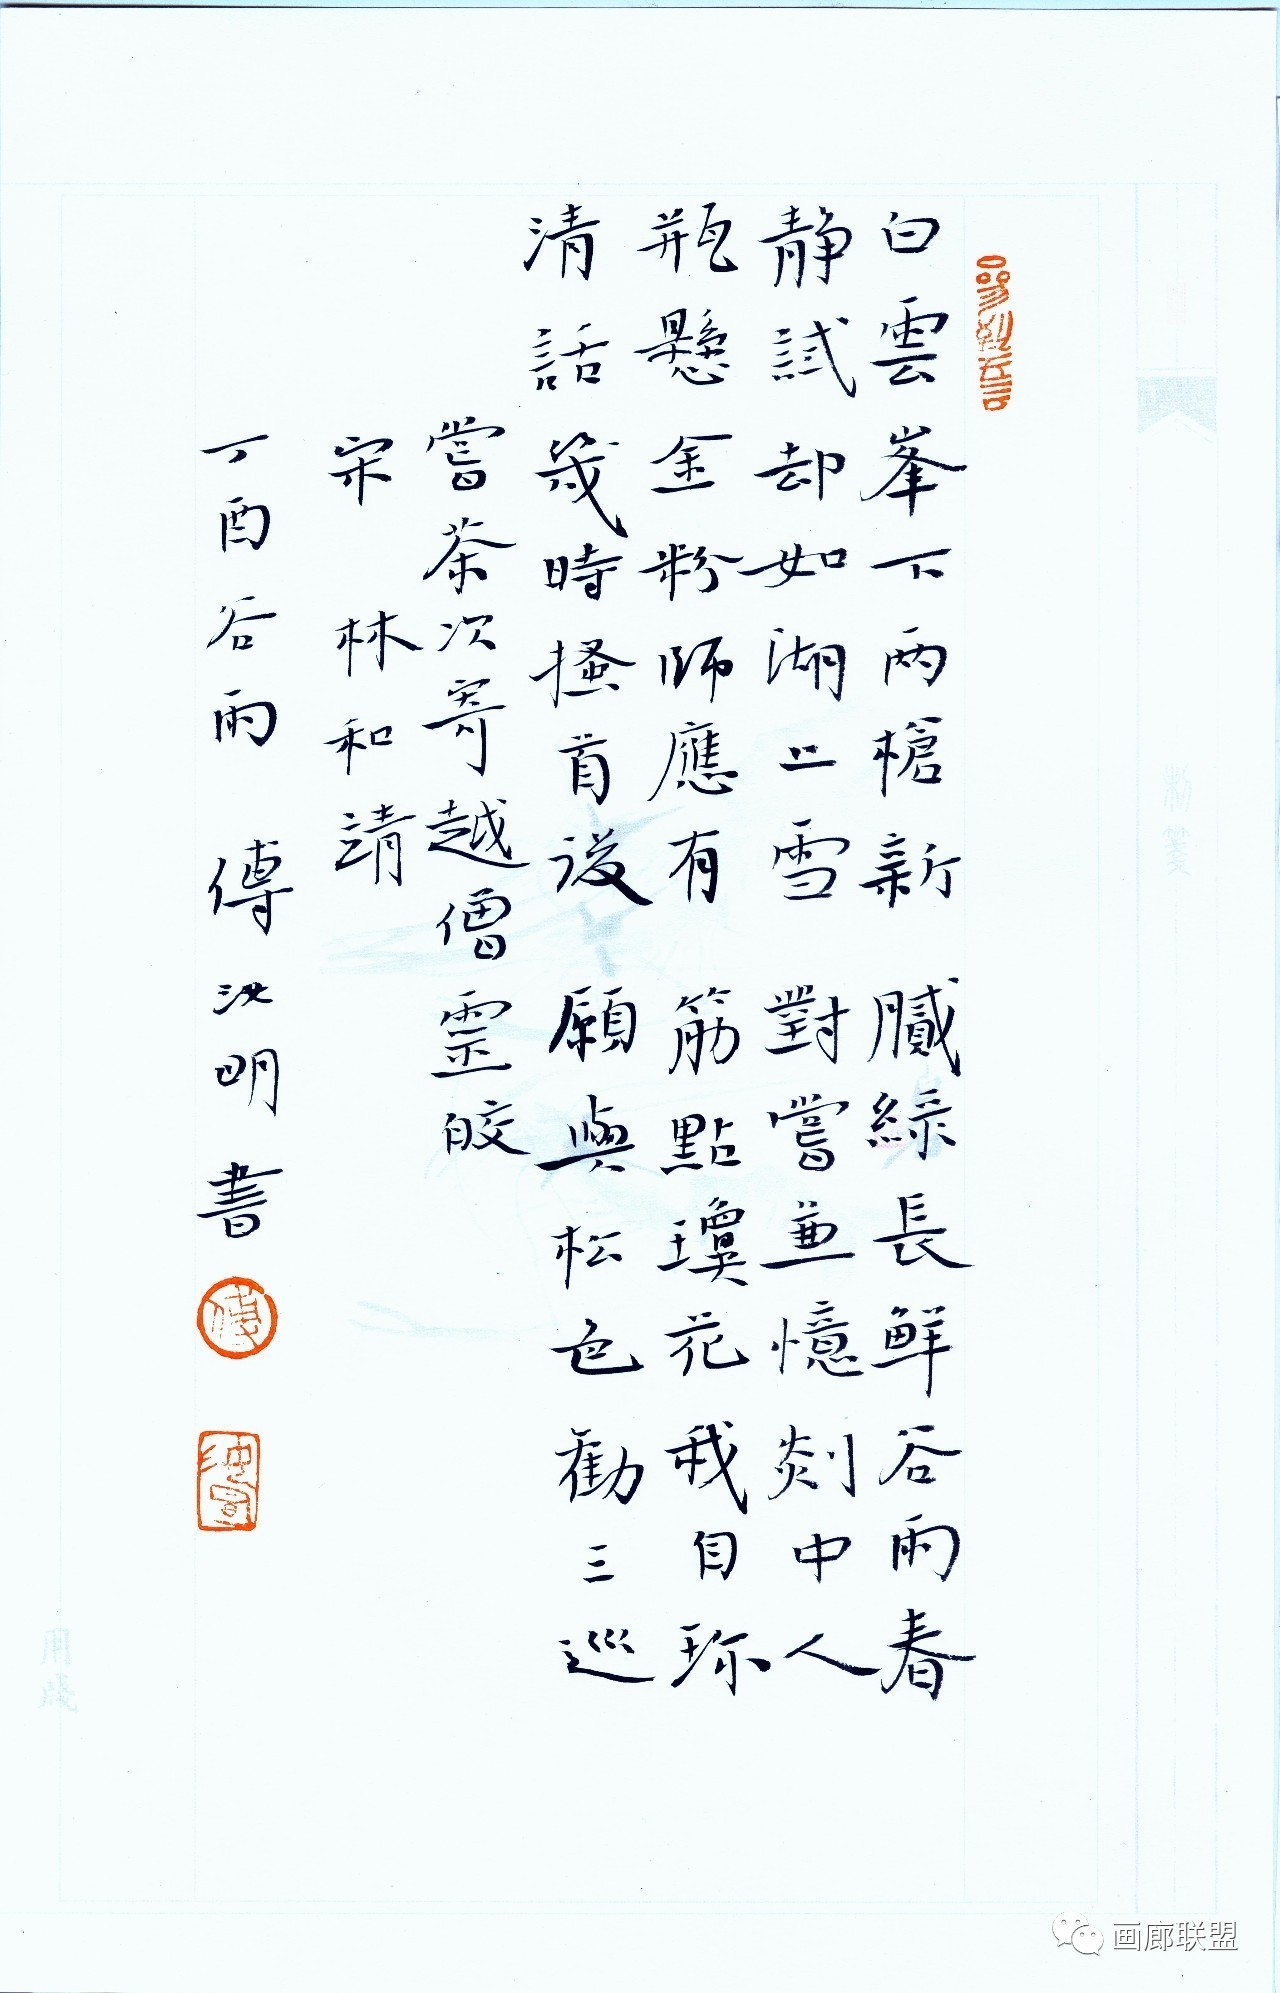 白雲峯下兩槍新 膩綠長鮮谷雨春
靜試却如湖上雪 對嘗兼憶剡中人
瓶懸金粉師應有 筋點瓊花我自珎
清話幾時搔首後 願與松色勸三巡
嘗茶次寄越僧靈皎
宋 林和靖
丁酉谷雨 傅沈明書
傅
画廊联盟